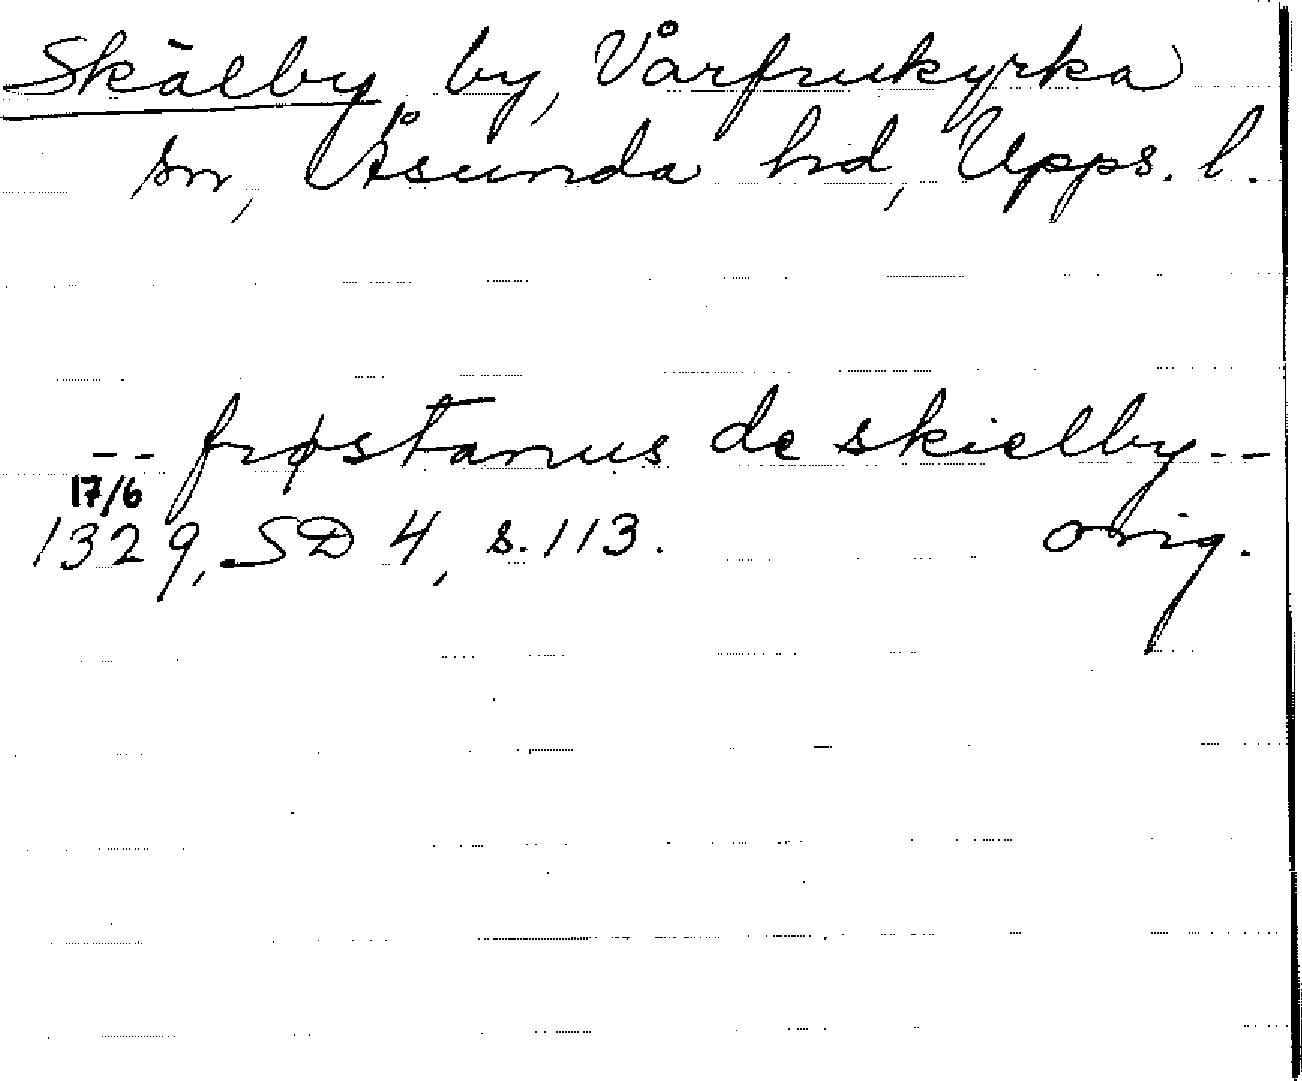 Skälby by, Vårfrukyrka
sn, Åsunda hd, Upps. l.
-- frøstanus de skielby --
17/6
1329, SD 4, s. 113. orig.